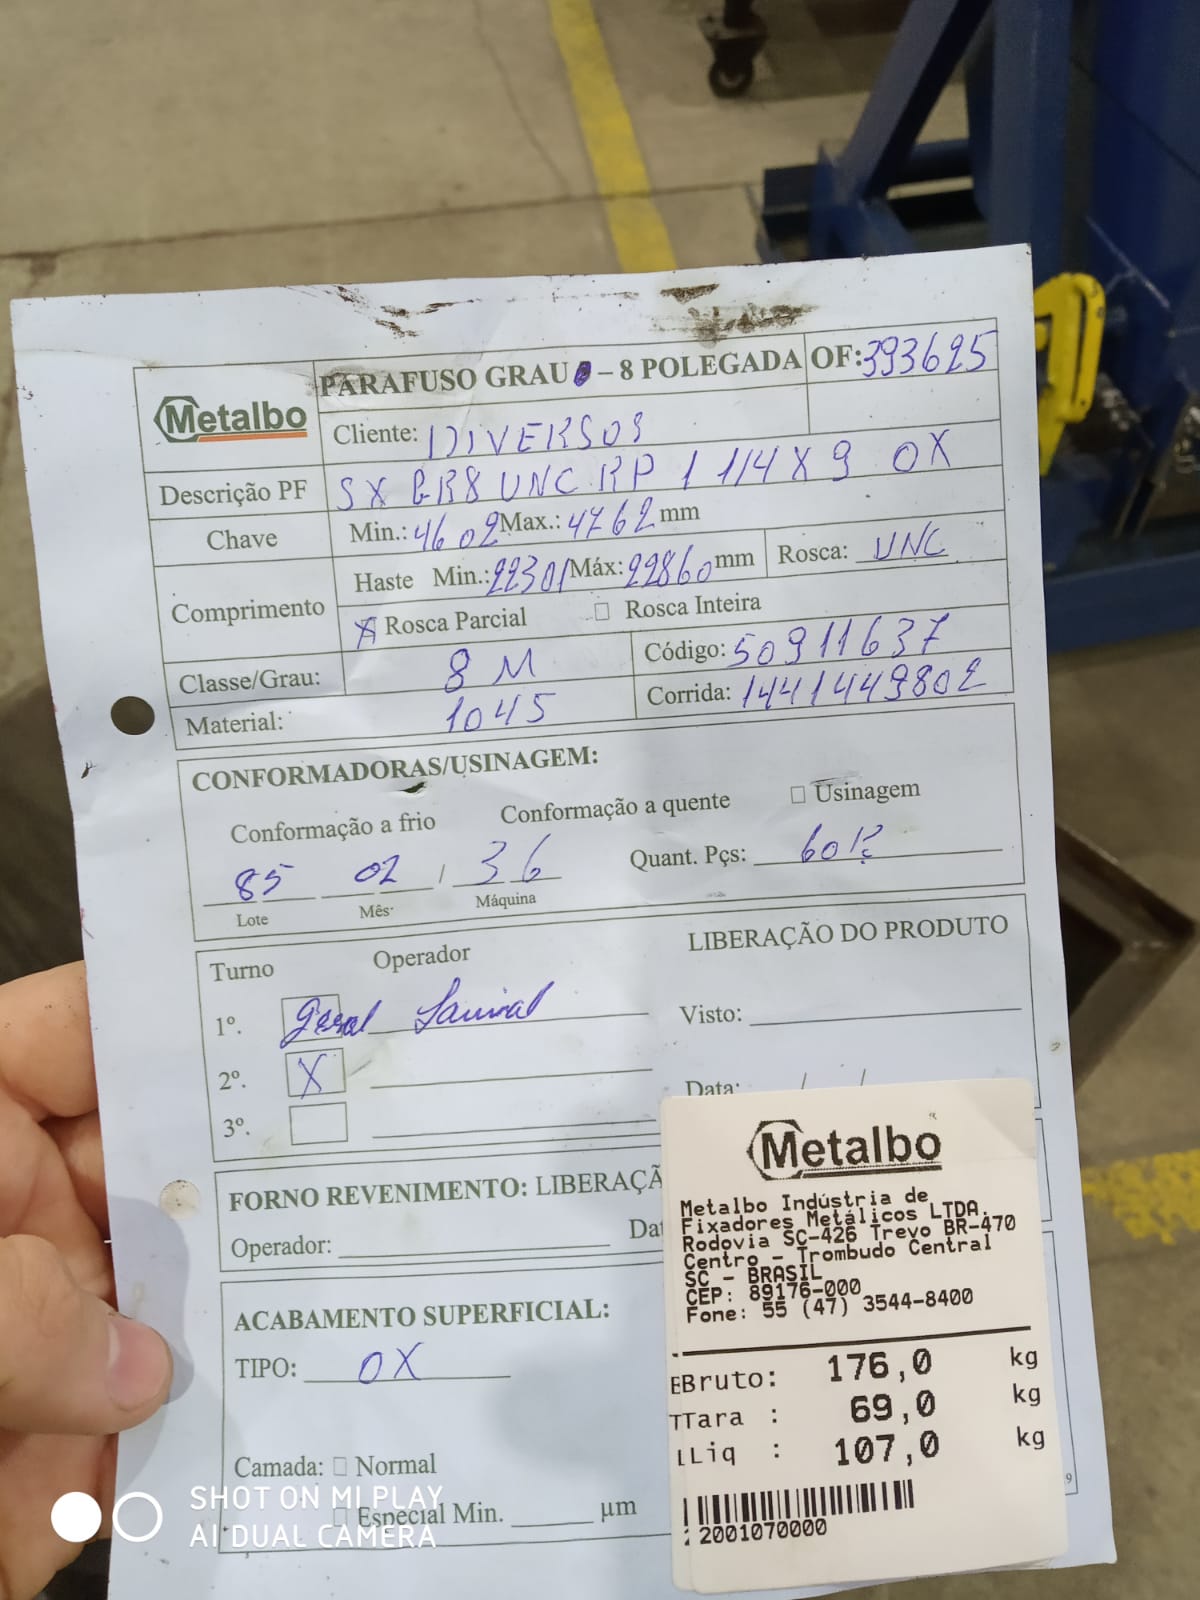 Metalbo
PARAFUSO GRAU – 8 POLEGADA OF:393625
Cliente: DIVERSOS
Descrição PF SX GR8 UNC RP 1 1/4 X 9 OX
Chave Min.: 4602 Max.: 4762 mm
Comprimento Haste Min.: 22301 Máx: 22860 mm Rosca: UNC
X Rosca Parcial □ Rosca Inteira
Classe/Grau: 8 M Código: 50911637
Material: 1045 Corrida: 1441449802
CONFORMADORAS/USINAGEM:
Conformação a frio Conformação a quente □ Usinagem
85 02 / 36 Quant. Pçs: 60
Lote Mês Máquina
Turno Operador LIBERAÇÃO DO PRODUTO
1º. Geral Visto:
2º. X Data: / /
3º.
FORNO REVENIMENTO: LIBERAÇÃ
Operador: Dat
ACABAMENTO SUPERFICIAL:
TIPO: OX
Camada: □ Normal
□ Especial Min. µm
9
Metalbo
Metalbo Indústria de
Fixadores Metálicos LTDA.
Rodovia SC-426 Trevo BR-470
Centro - Trombudo Central
SC - BRASIL
CEP: 89176-000
Fone: 55 (47) 3544-8400
Bruto: 176,0 kg
Tara : 69,0 kg
Liq : 107,0 kg
2001070000
SHOT ON MI PLAY
AI DUAL CAMERA